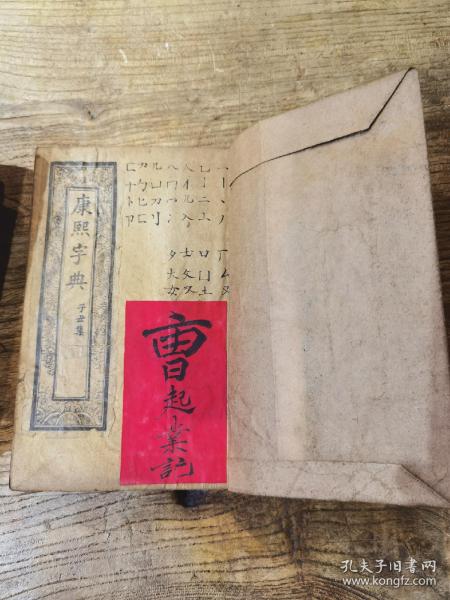 一丨丶丿
乙亅二亠
人亻儿入
八冂冖冫
几凵刀刂
力勹匕匚
匸十卜卩
厂厶又
口囗土
士夂夊
夕大女
康熙字典
子丑集
曹起業記
孔夫子旧书网
www.kongfz.com